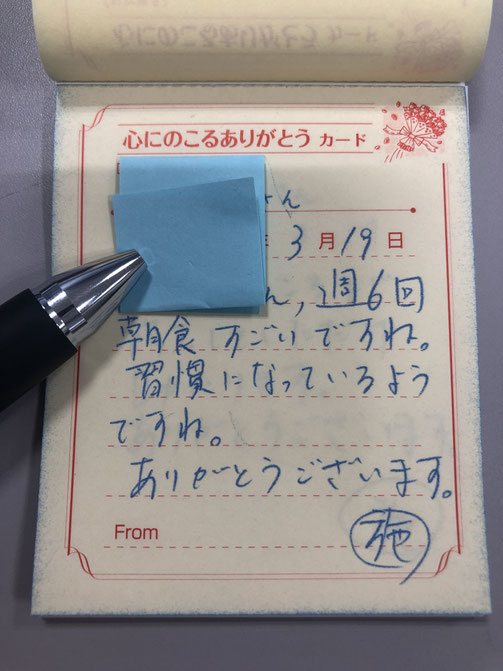 心にのこるありがとう カード
さん
3月19日
ん，週6回
朝食 すごいですね。
習慣になっているよう
ですね。
ありがとうございます。
From
施